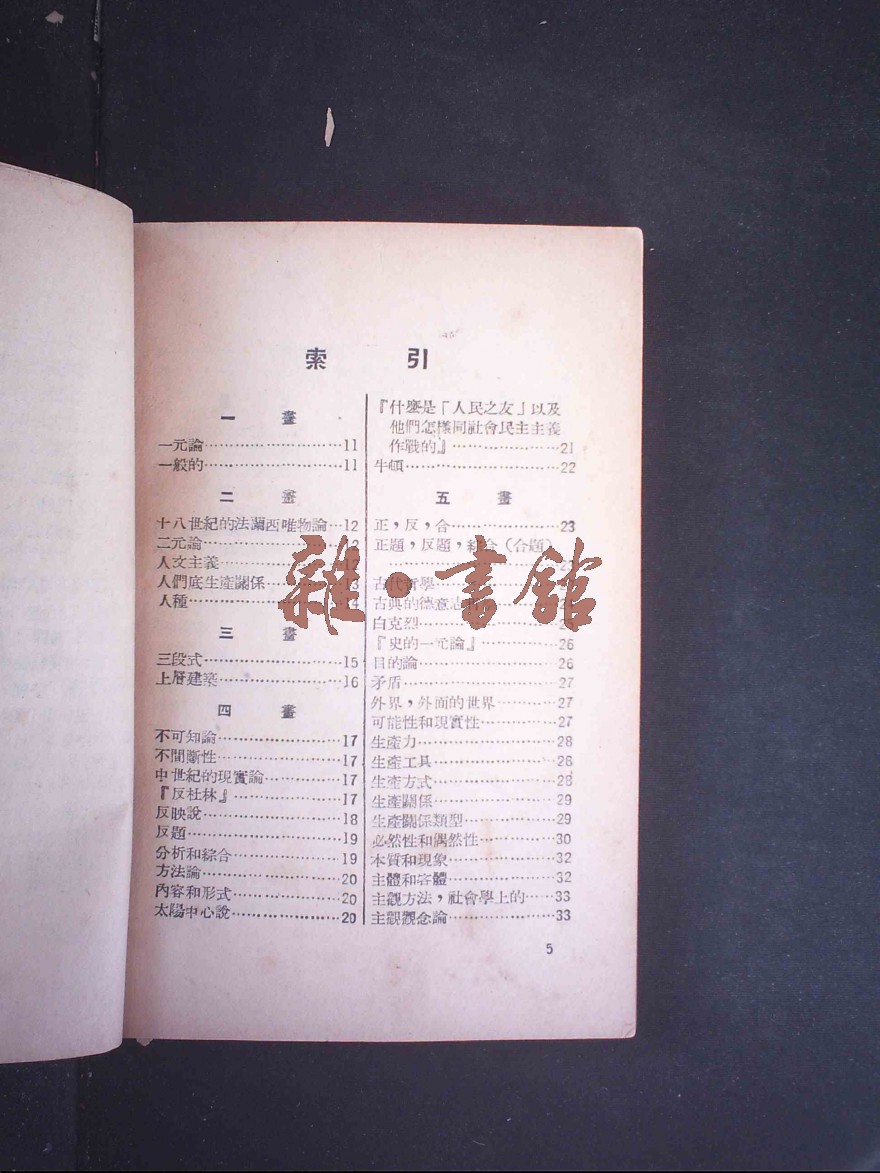 索引
一畫
一元論……11
一般的……11
二畫
十八世紀的法蘭西唯物論…12
二元論……12
人文主義……12
人們底生產關係……13
人種……14
三畫
三段式……15
上層建築……16
四畫
不可知論……17
不間斷性……17
中世紀的現實論……17
『反杜林』……17
反映說……18
反題……19
分析和綜合……19
方法論……20
內容和形式……20
太陽中心說……20
『什麼是「人民之友」以及
他們怎樣同社會民主主義
作戰的』……21
牛頓……22
五畫
正，反，合……23
正題，反題，綜合（合題）
……23
古代哲學……
古典的德意志
白克烈……
『史的一元論』……26
目的論……26
矛盾……27
外界，外面的世界……27
可能性和現實性……27
生產力……28
生產工具……28
生產方式……28
生產關係……29
生產關係類型……29
必然性和偶然性……30
本質和現象……32
主體和客體……32
主觀方法，社會學上的……33
主觀觀念論……33
5
雜·書館